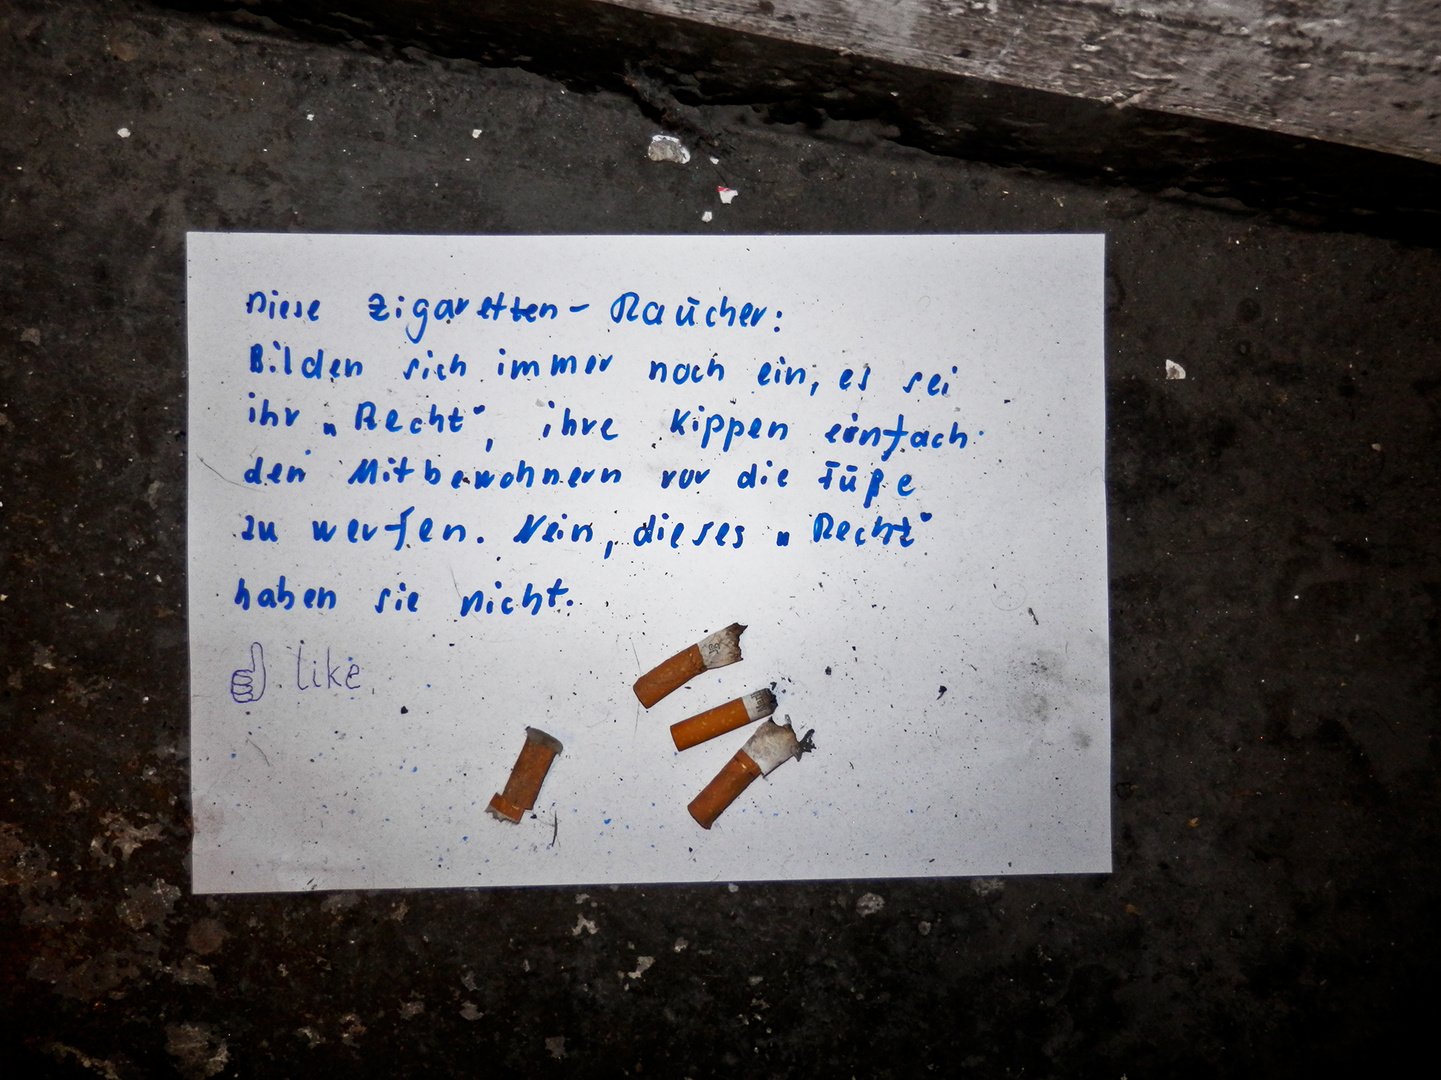 Diese Zigaretten-Raucher:
Bilden sich immer noch ein, es sei
ihr „Recht“, ihre Kippen einfach
den Mitbewohnern vor die Füße
zu werfen. Nein, dieses „Recht“
haben sie nicht.
like